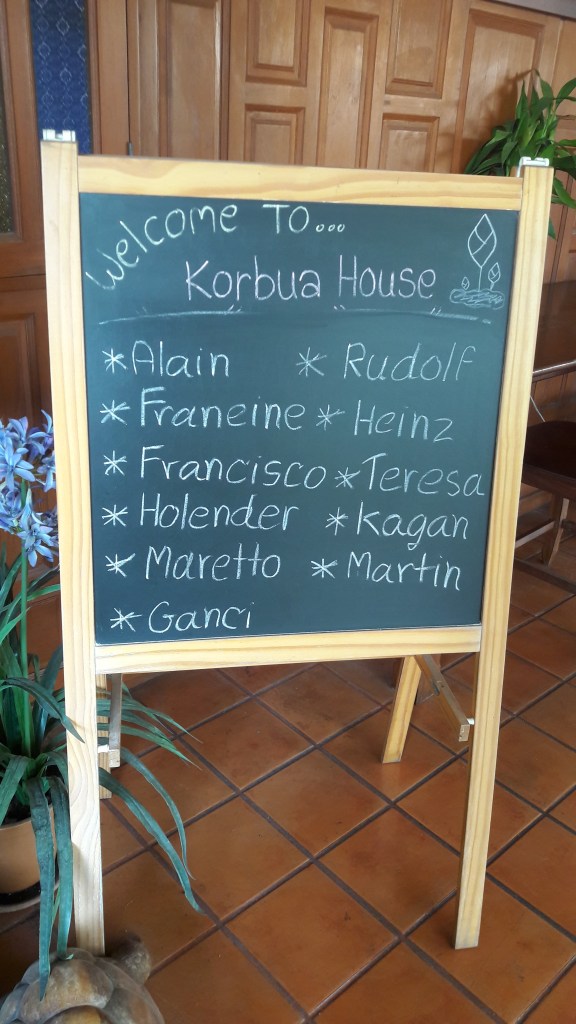 Welcome To...
Korbua House
*Alain * Rudolf
*Franeine * Heinz
*Francisco *Teresa
*Holender *Kagan
*Maretto *Martin
*Ganci